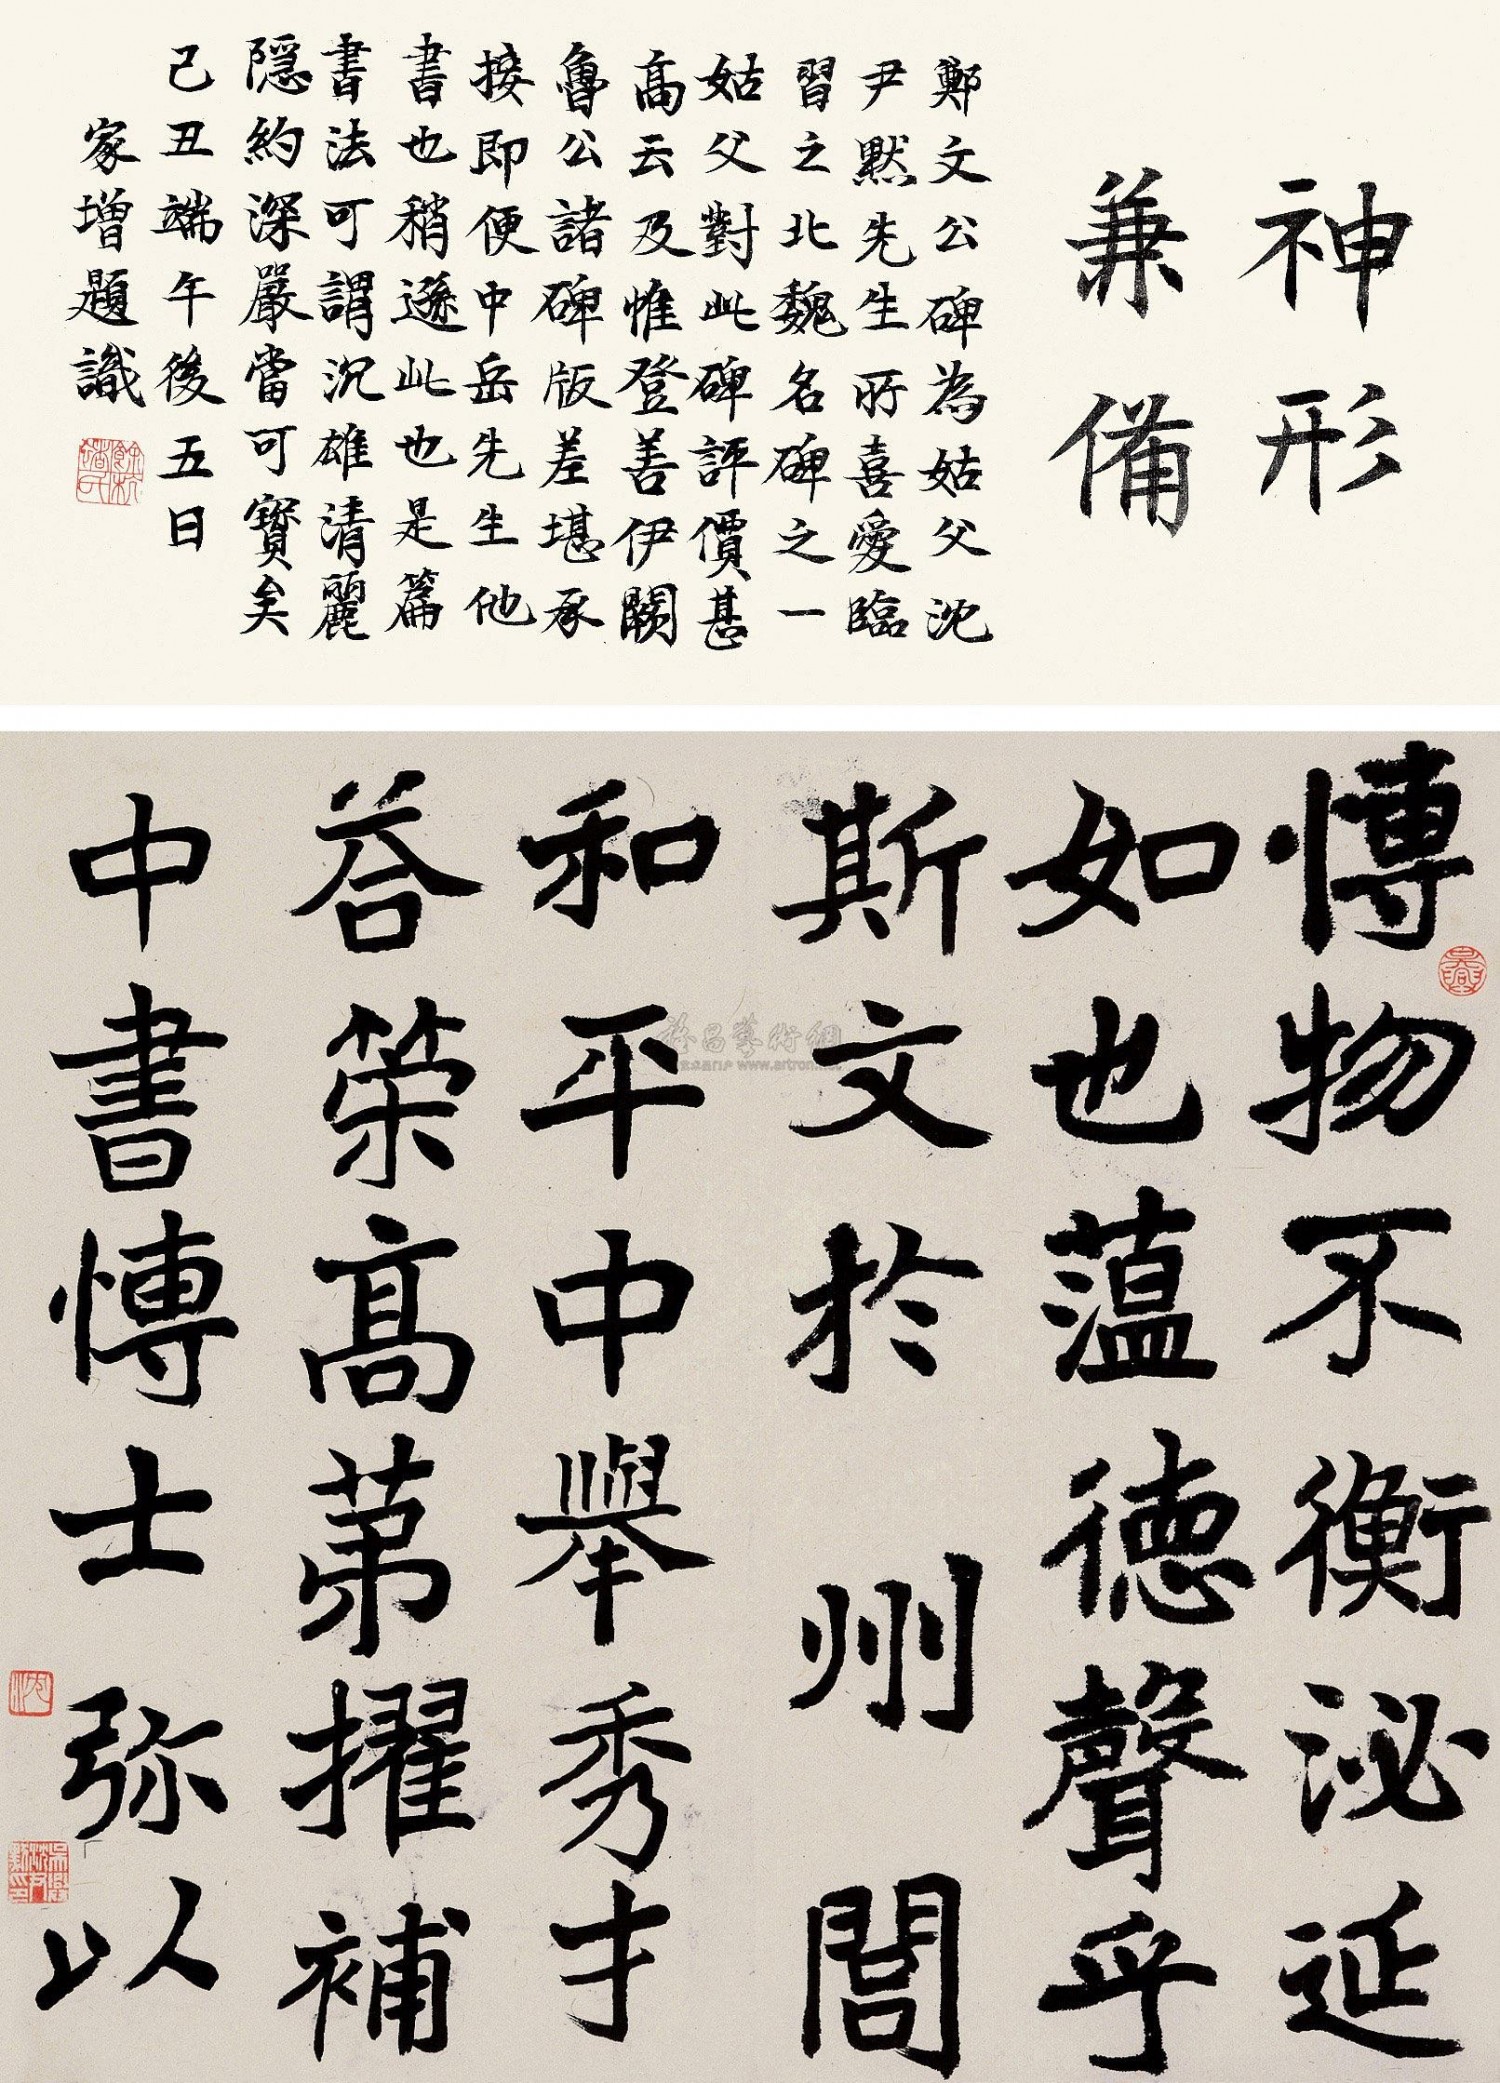 神形
兼備
鄭文公碑為姑父沈
尹默先生所喜愛臨
習之北魏名碑之一
姑父對此碑評價甚
高云及惟登善伊闕
魯公諸碑版差堪承
接即便中岳先生他
書也稍遜此也是篇
書法可謂沉雄清麗
隱約深嚴當可寶矣
己丑端午後五日
家增題識
博物不衡泌延
如也蕰德聲乎
斯文於州閭
和平中舉秀才
荅策高第擢補
中書博士弥以
www.artron.net